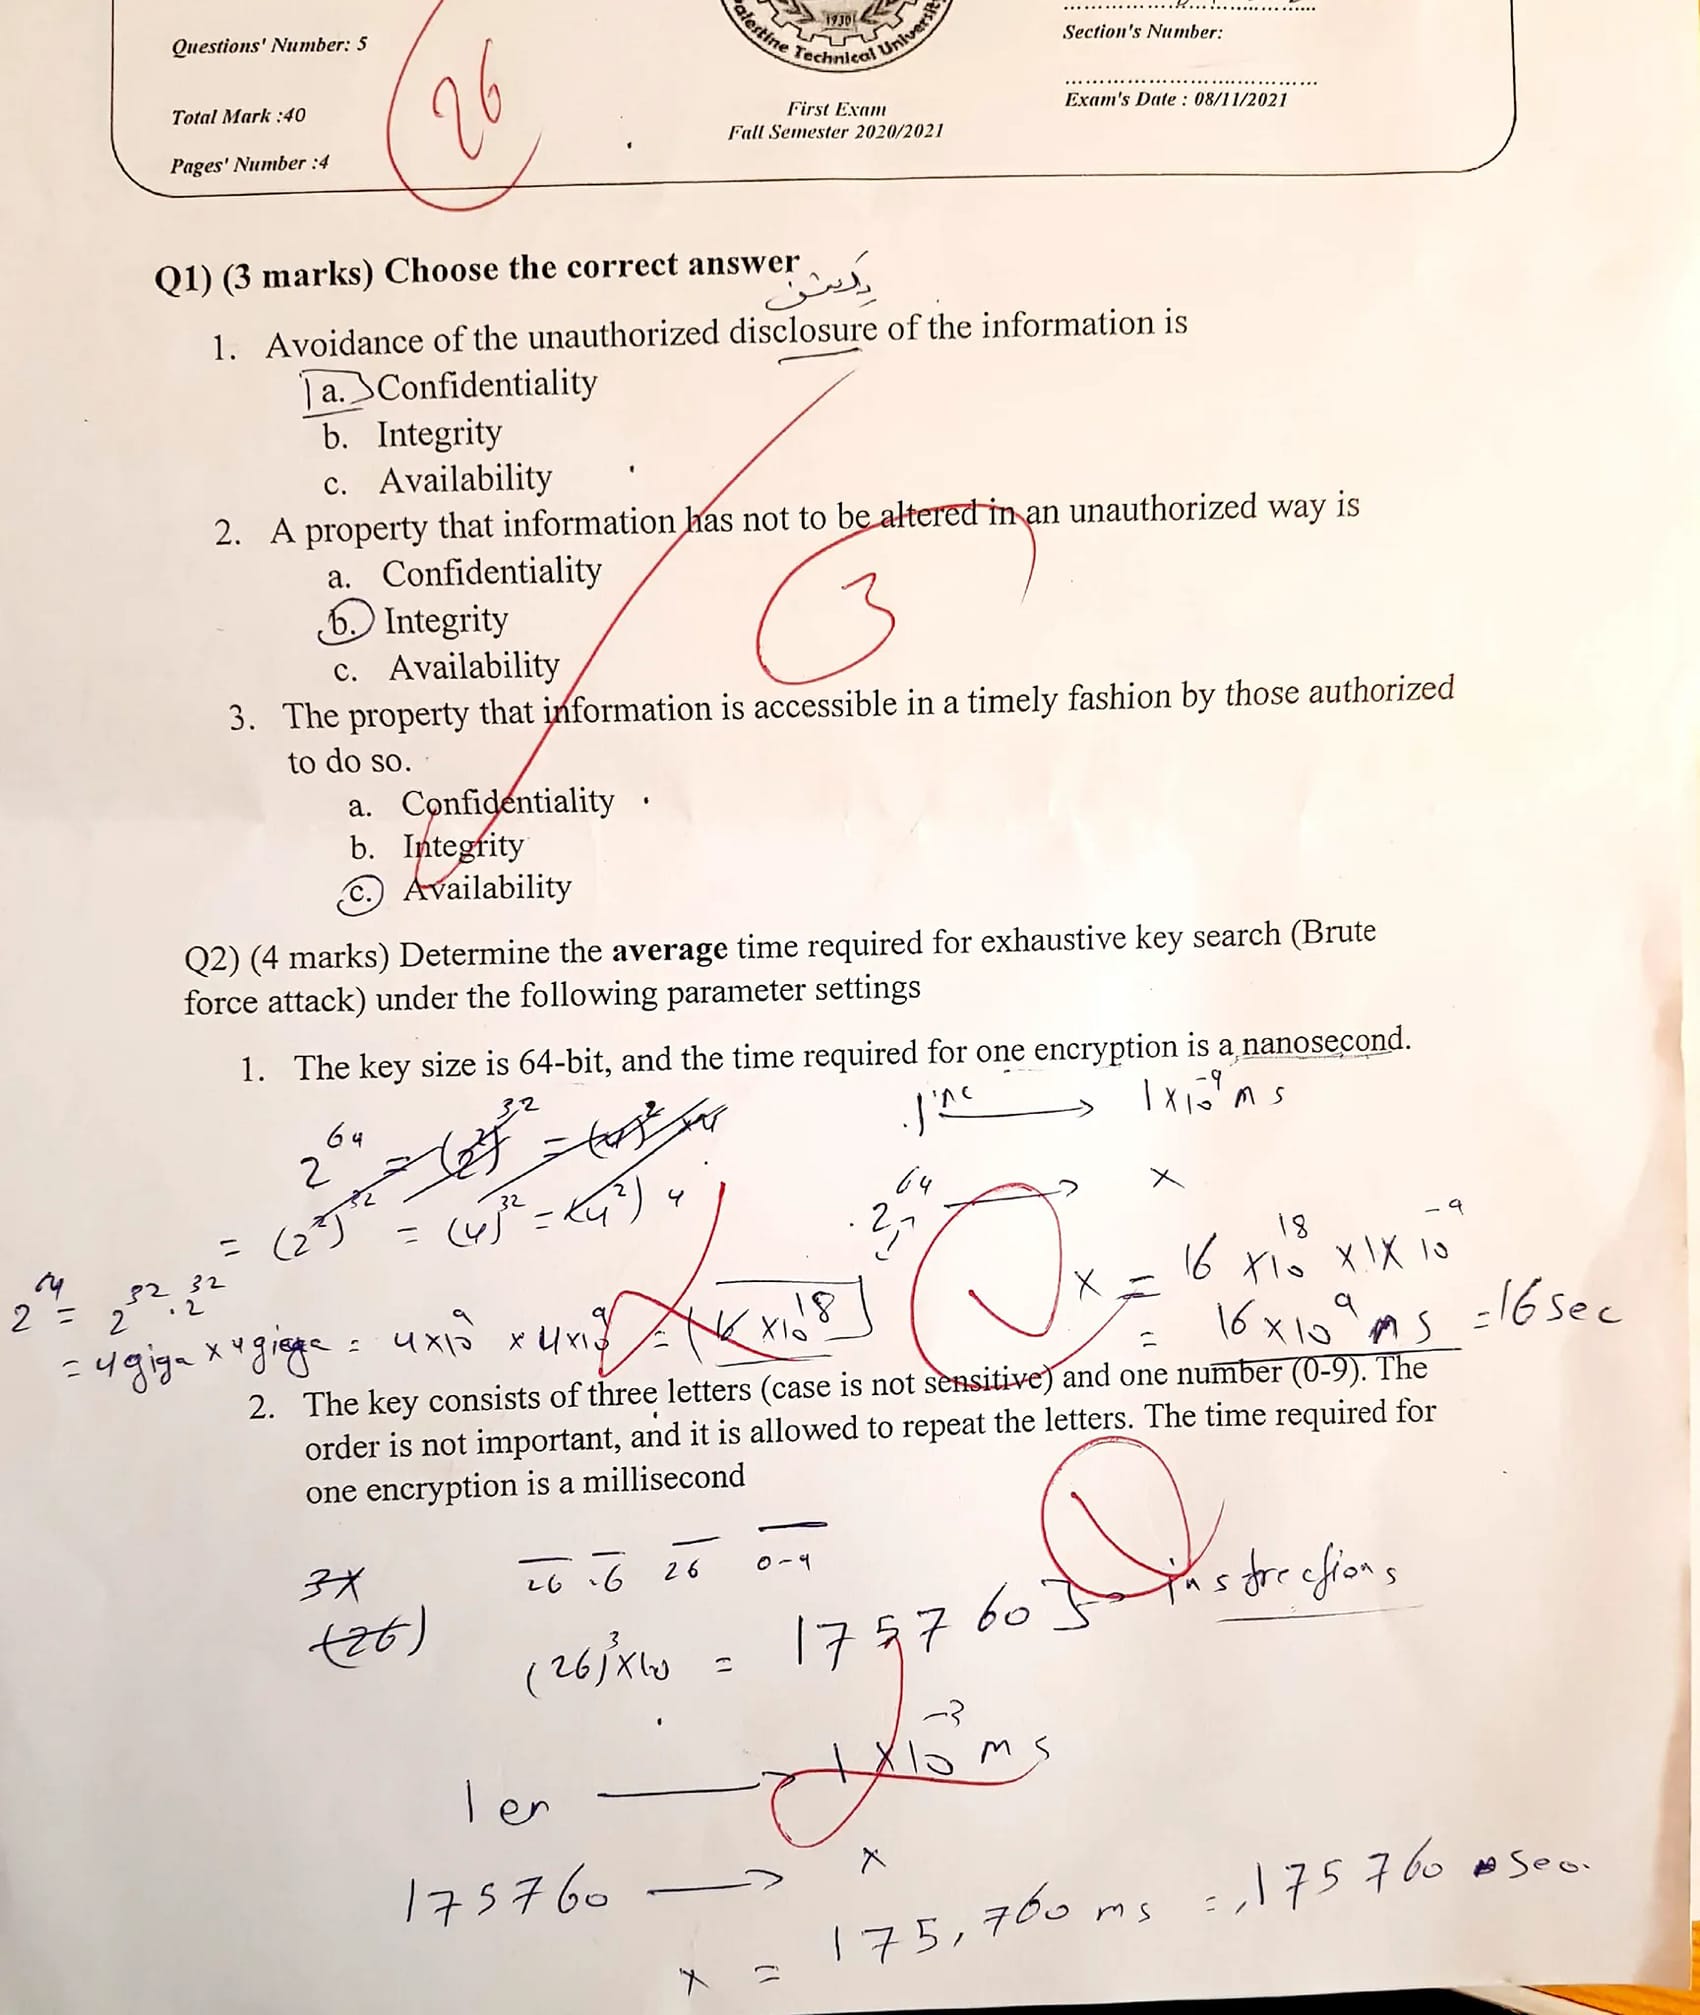 Questions' Number: 5
Total Mark :40
Pages' Number :4
26
1930
Palestine Technical University
First Exam
Fall Semester 2020/2021
Section's Number:
Exam's Date : 08/11/2021
Q1) (3 marks) Choose the correct answer
1. Avoidance of the unauthorized disclosure of the information is
a. Confidentiality
b. Integrity
c. Availability
2. A property that information has not to be altered in an unauthorized way is
a. Confidentiality
b. Integrity
c. Availability
3
3. The property that information is accessible in a timely fashion by those authorized
to do so.
a. Confidentiality
b. Integrity
c. Availability
Q2) (4 marks) Determine the average time required for exhaustive key search (Brute
force attack) under the following parameter settings
1. The key size is 64-bit, and the time required for one encryption is a nanosecond.
1 × 10^-9 ms
2^64
2^64 → x
= (2^2)^32 = (4)^32 = (4^2) 4
x = 16 × 10^18 × 1 × 10^-9
2^64 = 2^32 . 2^32
= 4giga × 4giga = 4×10^9 × 4×10^9 = 16 ×10^18
= 16 × 10^9 ms = 16 sec
2. The key consists of three letters (case is not sensitive) and one number (0-9). The
order is not important, and it is allowed to repeat the letters. The time required for
one encryption is a millisecond
3x
26 26 26 0-9
(26)
(26)^3 ×10 = 175760 instrections
1 en → 1 × 10^-3 ms
175760 → x
x = 175,760 ms = ,175760 sec.